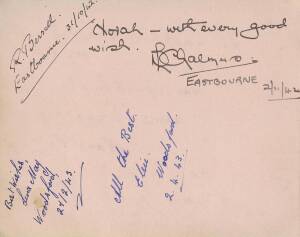 Eastbourne. 31/10/42.
Norah – with every good
wish.
EASTBOURNE
2/11/42
Best wishes,
May
Woodsford
28/2/43
All the Best.
Elsie.
Woodsford.
2.4.43.